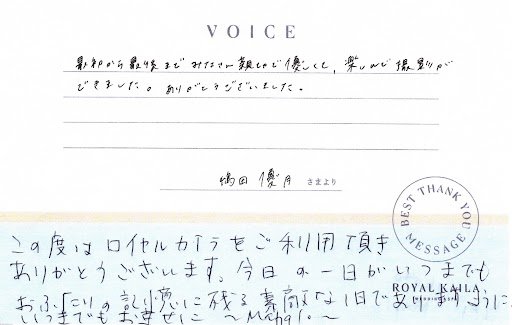 VOICE
最初から最後までみなさん親切で優しくて、楽しんで撮影が
できました。ありがとうございました。
嶋田 優月 さまより
BEST THANK YOU MESSAGE
ROYAL KAILA
WEDDING
この度はロイヤルカイラをご利用頂き
ありがとうございます。今日の一日がいつまでも
おふたりの記憶に残る素敵な1日でありますように
いつまでもお幸せに ~Mahalo~